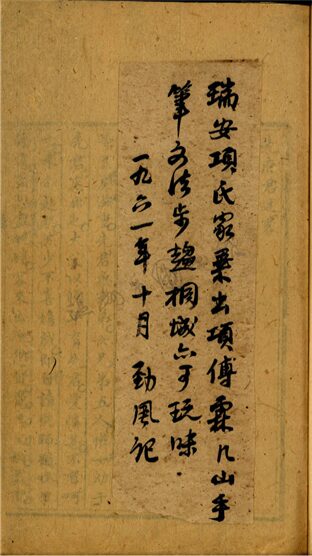 瑞安項氏家乘出項傅霖几山手
筆文法步趨桐城亦可玩味.
一九六一年十月 勁風記